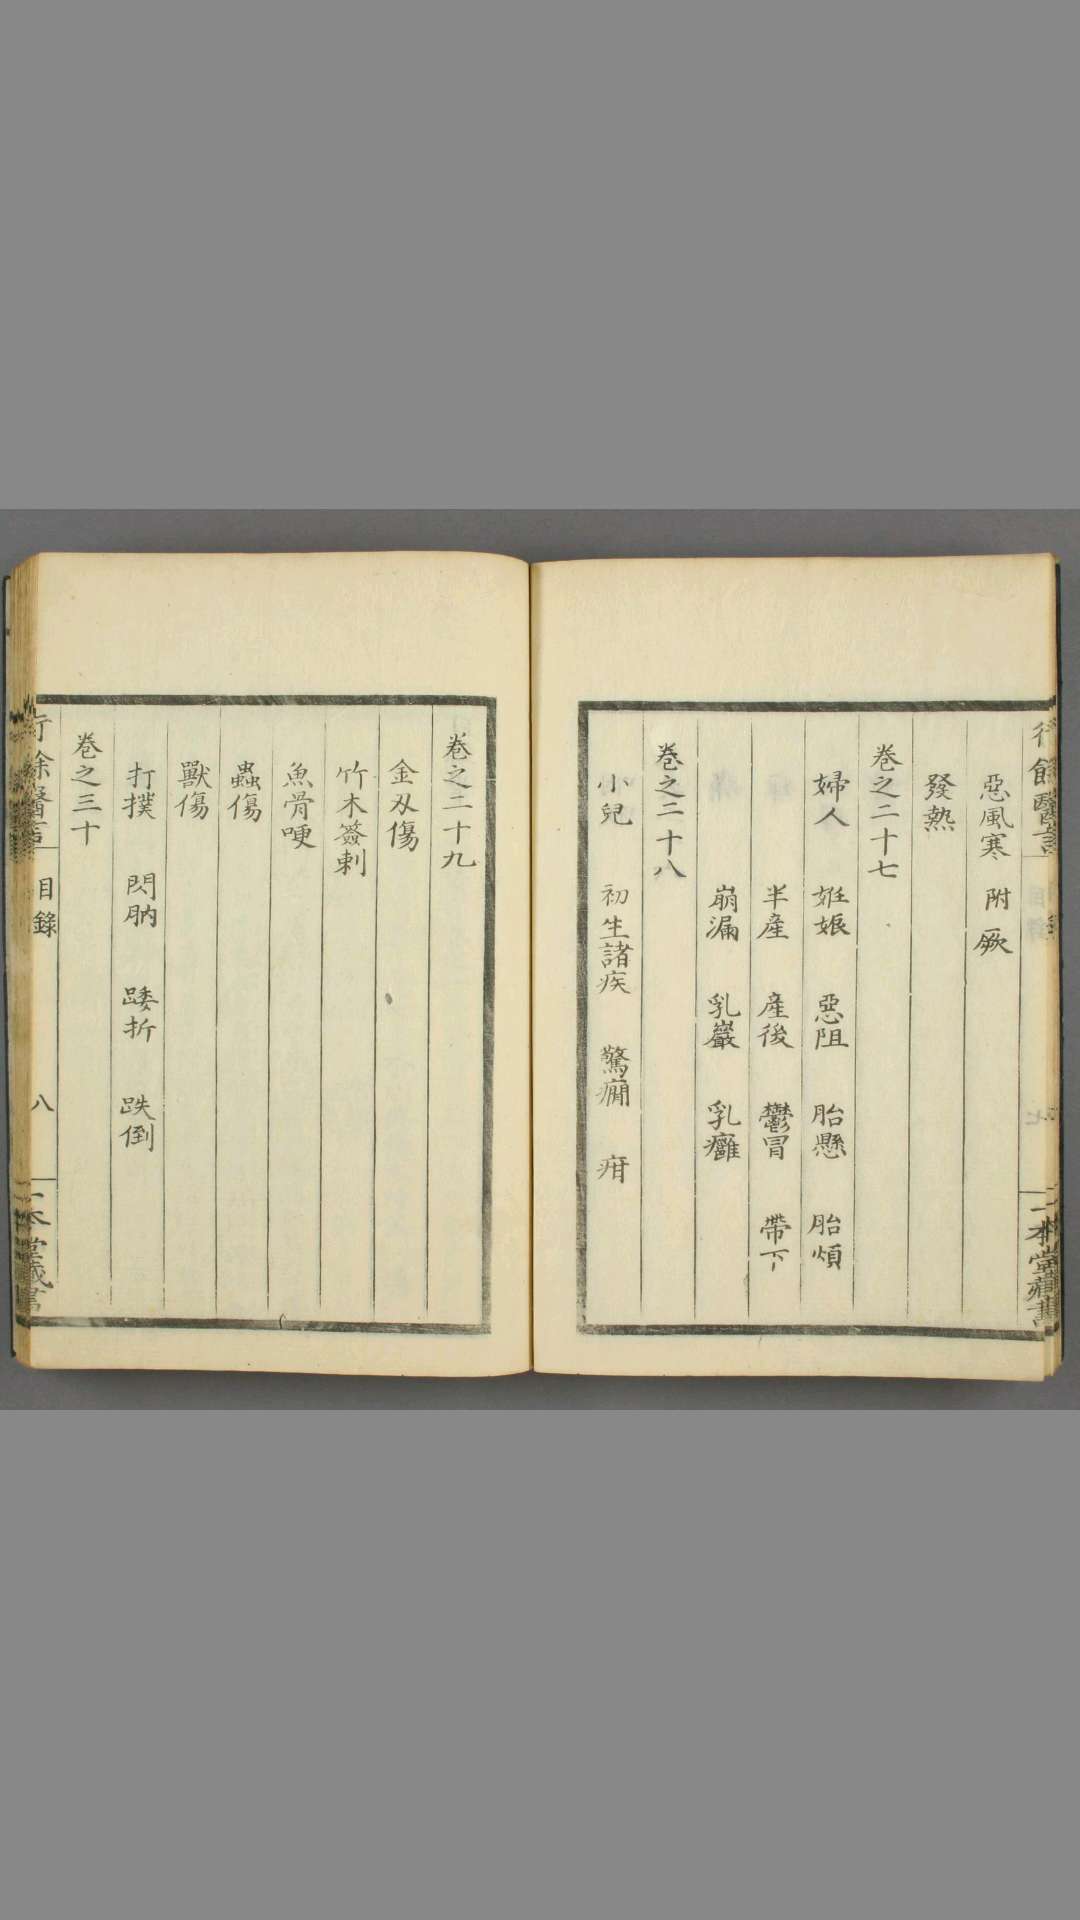 惡風寒 附厥
發熱
卷之二十七
婦人 姙娠 惡阻 胎懸 胎煩
半産 産後 鬱冒 帶下
崩漏 乳巖 乳癰
卷之二十八
小兒 初生諸疾 驚癇 疳
卷之二十九
金刄傷
竹木簽刺
魚骨哽
蟲傷
獸傷
打撲 閃肭 踒折 跌倒
卷之三十
行餘醫言 目錄 八 一本堂藏書